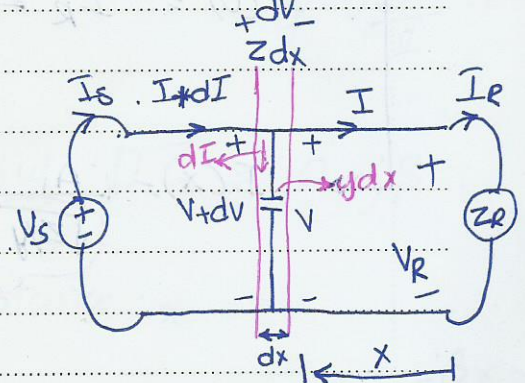 + dV -
Zdx
Is I+dI I IR
+ +
dI ydx +
Vs + - V+dV V ZR
VR
- - -
dx x